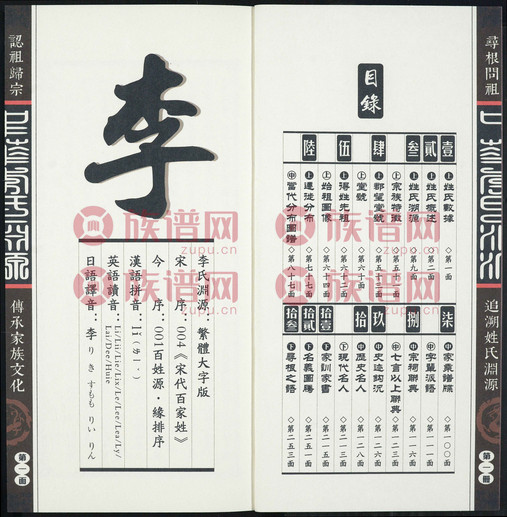 尋根問祖
追溯姓氏淵源
第一冊
目錄
壹
貳
叁
肆
伍
陸
上 姓氏數據 ◇第一面
上 姓氏概述 ◇第二面
上 姓氏淵源 ◇第九面
上 宗族特徵
上 郡望堂號 ◇第五十三面
上 堂號
上 得姓先祖 ◇第六十二面
上 始祖圖像 ◇第六十四面
上 遷徙分布 ◇第七十七面
中 當代分布圖譜 ◇第八十七面
柒
捌
玖
拾
拾壹
拾貳
拾叁
中 家乘譜牒 ◇第一〇〇面
中 字輩派語
中 宗祠聯典 ◇第一一六面
中 七言以上聯典
中 史迹鈎沉
中 歷史名人 ◇第一二八面
下 現代名人
下 家訓家書
下 名義圖騰 ◇第二五一面
下 尋根之語 ◇第二五三面
認祖歸宗
傳承家族文化
第一面
李
李氏淵源：繁體大字版
宋　序：004《宋代百家姓》
今　序：001百姓源·緣排序
漢語拼音：lǐ（ㄌㄧˇ）
英語讀音：Li/Lii/Lie/Lix/Le/Lee/Lea/Ly/
Lai/Dee/Huie
日語譯音：李 り き すもも りい りん
族谱网
zupu.cn
族谱网
zupu.cn